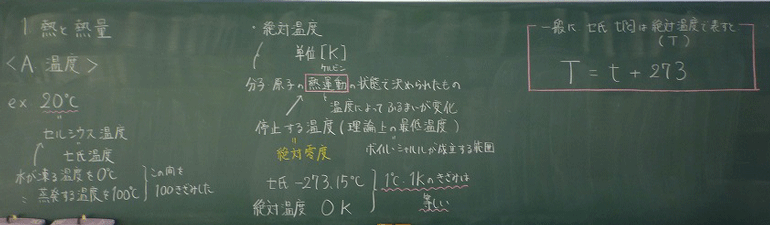 1 熱と熱量
<A 温度>
ex 20℃
セルシウス温度
セ氏温度
水が凍る温度を0℃
〃 蒸発する温度を100℃
この間を
100きざみした
・絶対温度
単位[K]
ケルビン
分子・原子の熱運動の状態で決められたもの
温度によってふるまいが変化
停止する温度(理論上の最低温度)
絶対零度
ボイル・シャルルが成立する範囲
セ氏 -273.15℃
絶対温度 0K
1℃・1Kのきざみは
等しい
一般に セ氏 t[℃]は絶対温度で表すと
(T)
T = t + 273